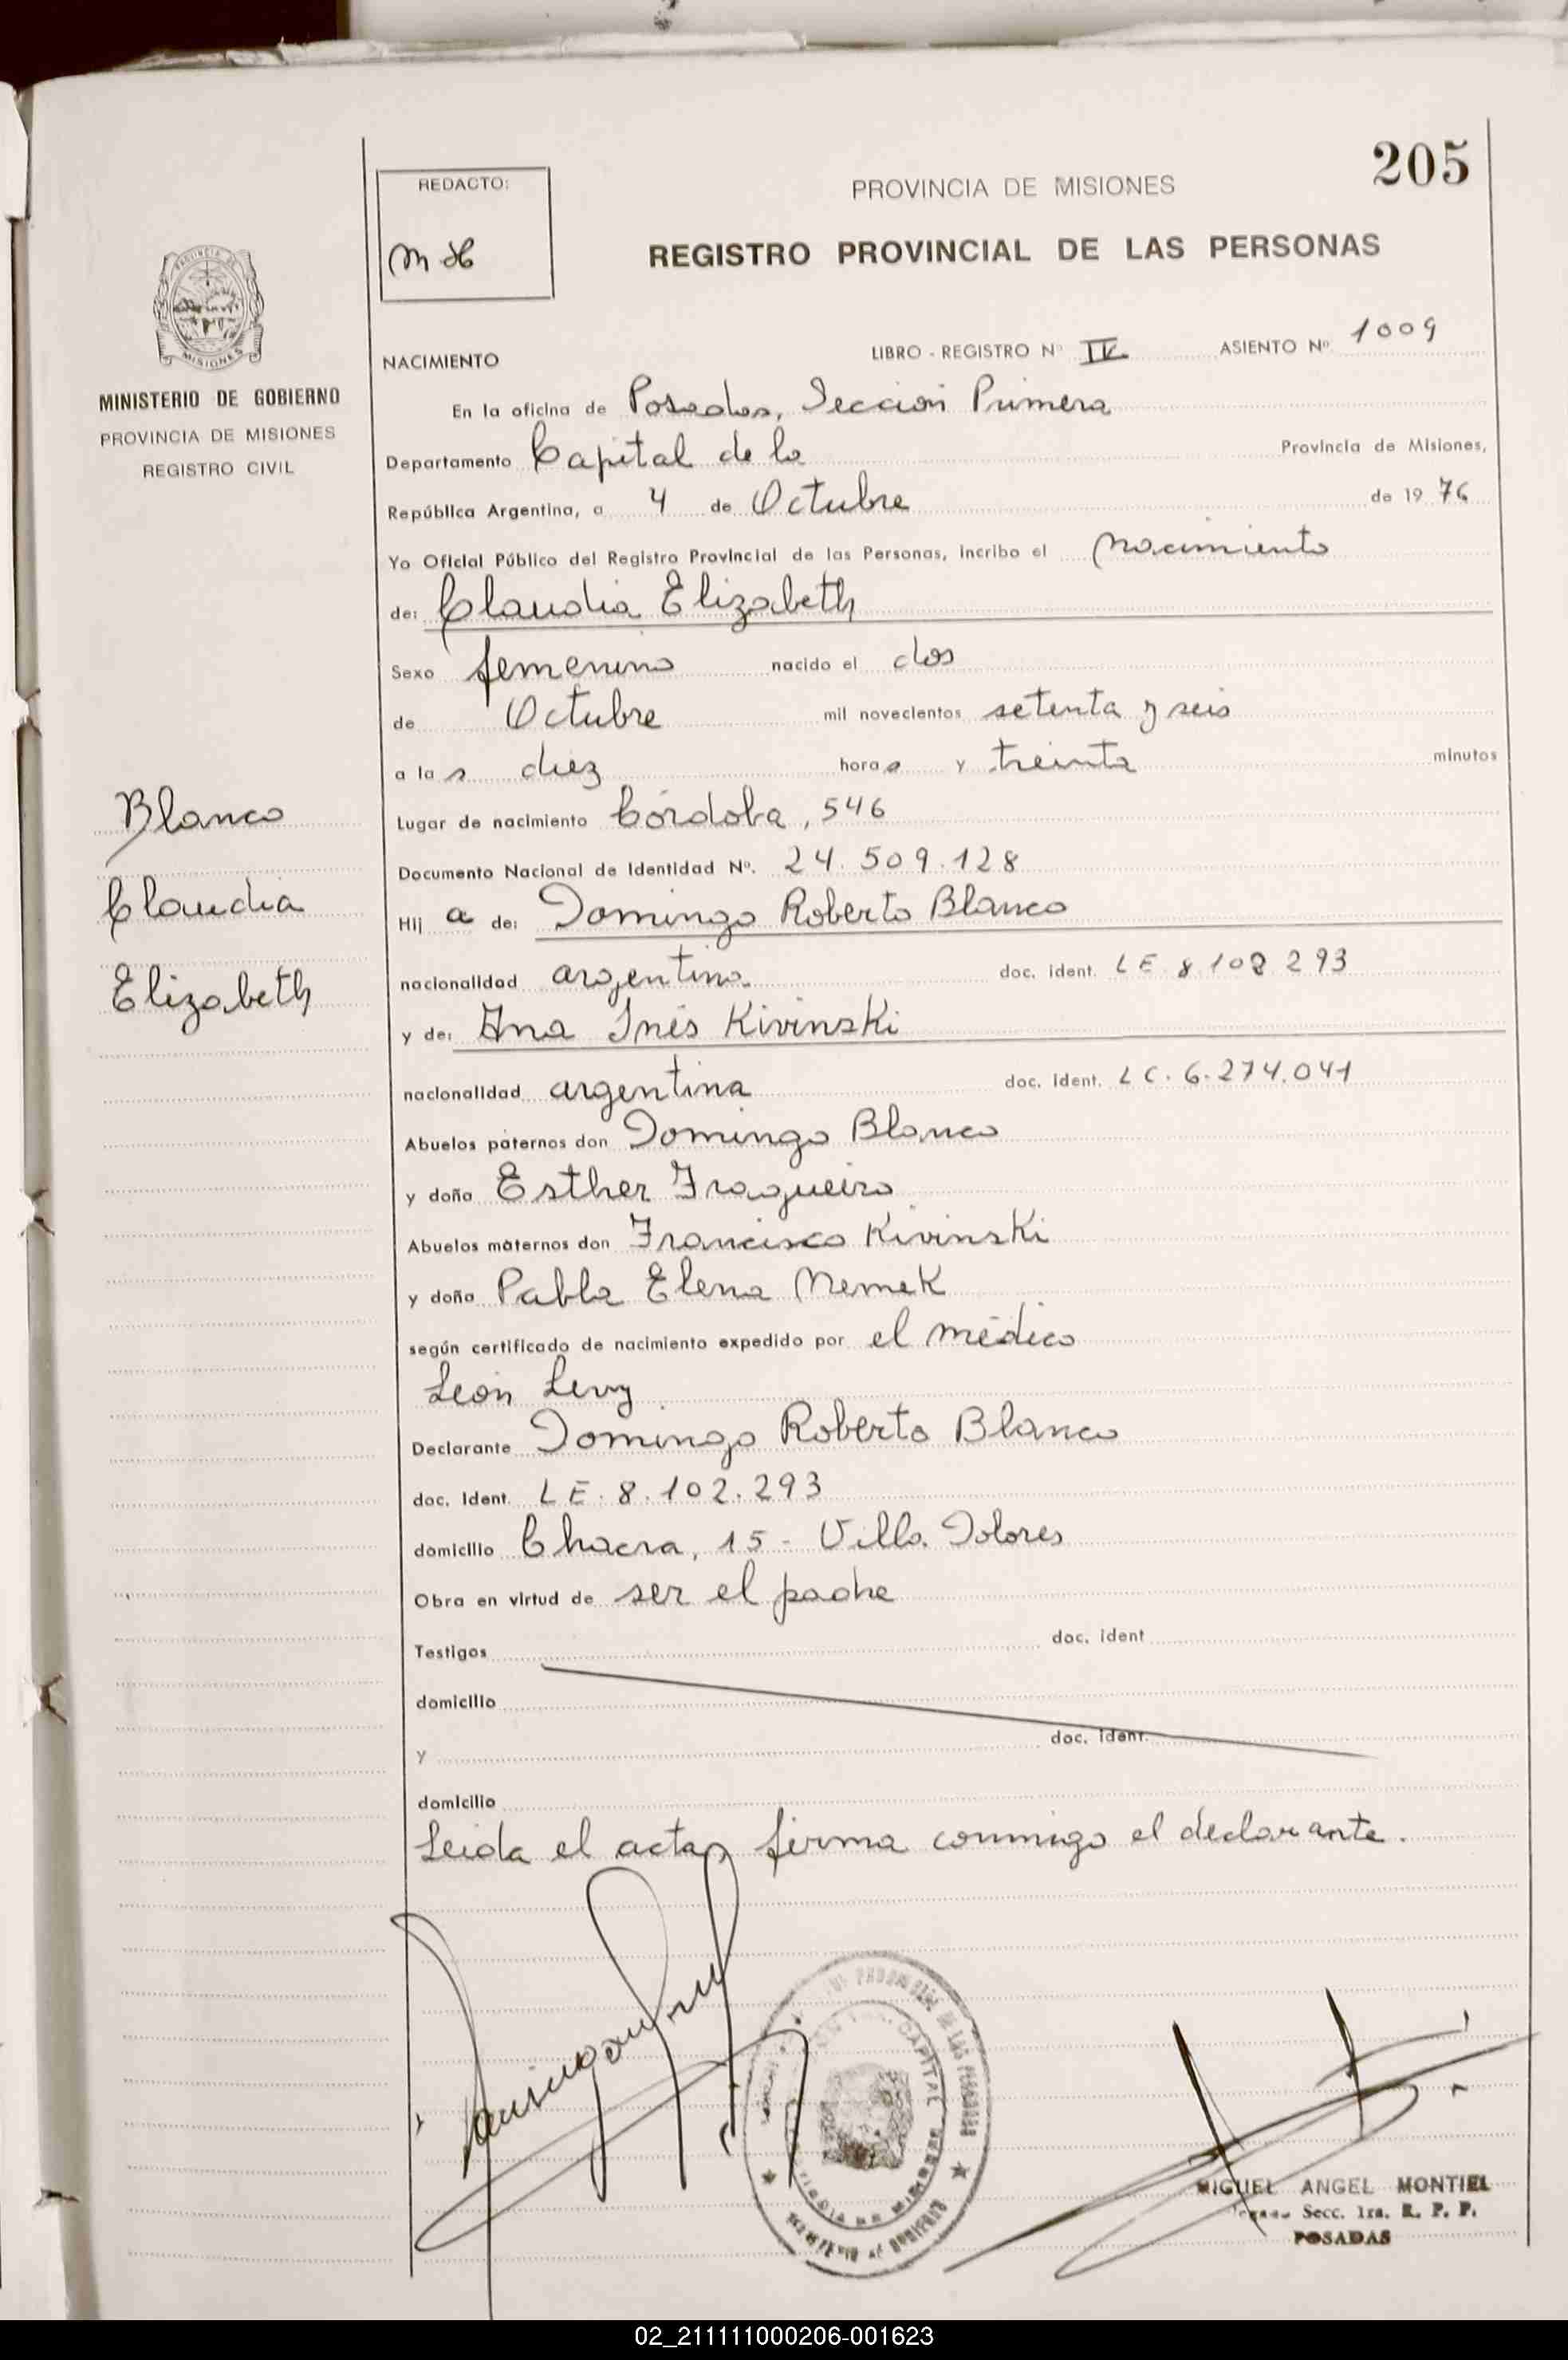 205
REDACTO:
PROVINCIA DE MISIONES
REGISTRO PROVINCIAL DE LAS PERSONAS
MINISTERIO DE GOBIERNO
PROVINCIA DE MISIONES
REGISTRO CIVIL
NACIMIENTO LIBRO - REGISTRO Nº IV ASIENTO Nº 1009
En la oficina de Posadas, Sección Primera
Departamento Capital de la Provincia de Misiones,
República Argentina, a 4 de Octubre de 1976
Yo Oficial Público del Registro Provincial de las Personas, incribo el nacimiento
de: Claudia Elizabeth
Sexo femenino nacido el dos
de Octubre mil novecientos setenta y seis
a las diez horas y treinta minutos
Blanco
Claudia
Elizabeth
Lugar de nacimiento Córdoba, 546
Documento Nacional de Identidad Nº. 24.509.128
Hij a de: Domingo Roberto Blanco
nacionalidad argentina doc. ident. LE 8.102 293
y de: Ana Inés Kivinski
nacionalidad argentina doc. ident. LC. 6.274.041
Abuelos paternos don Domingo Blanco
y doña Esther Fragueiro
Abuelos maternos don Francisco Kivinski
y doña Pabla Elena Nemek
según certificado de nacimiento expedido por el médico
León Levy
Declarante Domingo Roberto Blanco
doc. Ident. LE. 8.102.293
domicilio Chacra, 15 - Villa Dolores
Obra en virtud de ser el padre
Testigos doc. ident
domicilio
y doc. ident.
domicilio
Leida el acta, firma conmigo el declarante.
CAPITAL
MIGUEL ANGEL MONTIEL
Secc. 1ra. R. P. P.
POSADAS
02_211111000206-001623